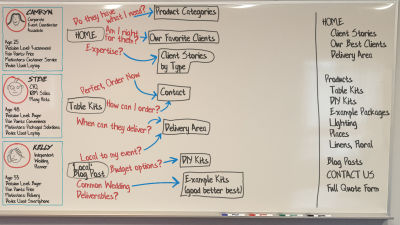 CAMRYN
Corporate
Event Coordinator
Associate
Age 25
Decision Level: Recommend
Pain Points: Price
Motivators: Customer Service
Device Used: Laptop
STEVE
CIO,
Many Hats
Age 48
Decision Level: Buyer
Pain Points: Convenience
Motivators: Packaged Solutions
Device Used: Laptop
KELLY
Independent
Wedding
Planner
Age 33
Decision Level: Buyer
Pain Points: Price
Motivators: Price
Device Used: Smartphone
Do they have
what I need?
Product Categories
HOME
Am I right
for them?
Our Favorite Clients
Expertise?
Client Stories
by Type
Perfect, Order Now
Contact
Table Kits
How can I order?
When can they deliver?
Delivery Area
Local to my event?
Local
Blog Post
Budget options?
DIY Kits
Common Wedding
Deliverables?
Example Kits
(good better best)
HOME
Client Stories
Our Best Clients
Delivery Area
Products
Table Kits
DIY Kits
Example Packages
Lighting
Places
Linens, Floral
Blog Posts
CONTACT US
Full Quote Form